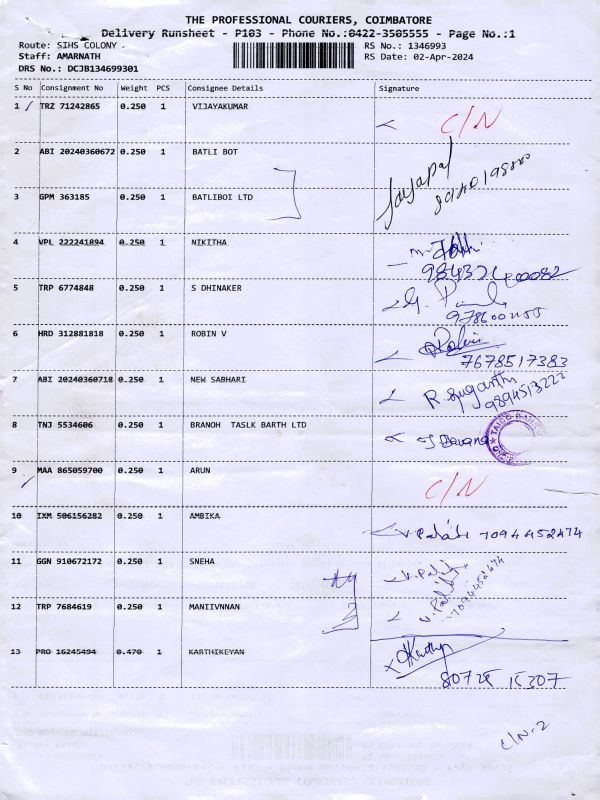 THE PROFESSIONAL COURIERS, COIMBATORE
Delivery Runsheet - P103 - Phone No.:0422-3505555 - Page No.:1
Route: SIHS COLONY RS No.: 1346993
Staff: AMARNATH RS Date: 02-Apr-2024
DRS No.: DCJB134699301
S No Consignment No Weight PCS Consignee Details Signature
1 TRZ 71242865 0.250 1 VIJAYAKUMAR C/N
2 ABI 20240360672 0.250 1 BATLI BOT
Jayapal
3 GPM 363185 0.250 1 BATLIBOI LTD
4 VPL 222241894 0.250 1 NIKITHA
5 TRP 6774848 0.250 1 S DHINAKER
6 HRD 312881818 0.250 1 ROBIN V
7678517383
7 ABI 20240360718 0.250 1 NEW SABHARI R. Suganth
9894513222
8 TNJ 5534606 0.250 1 BRANOH TASLK BARTH LTD
9 MAA 865059700 0.250 1 ARUN C/N
10 IXM 506156282 0.250 1 AMBIKA 7094452474
11 GGN 910672172 0.250 1 SNEHA
7094452474
12 TRP 7684619 0.250 1 MANIIVNNAN
13 PRO 16245494 0.470 1 KARTHIKEYAN
C/N-2